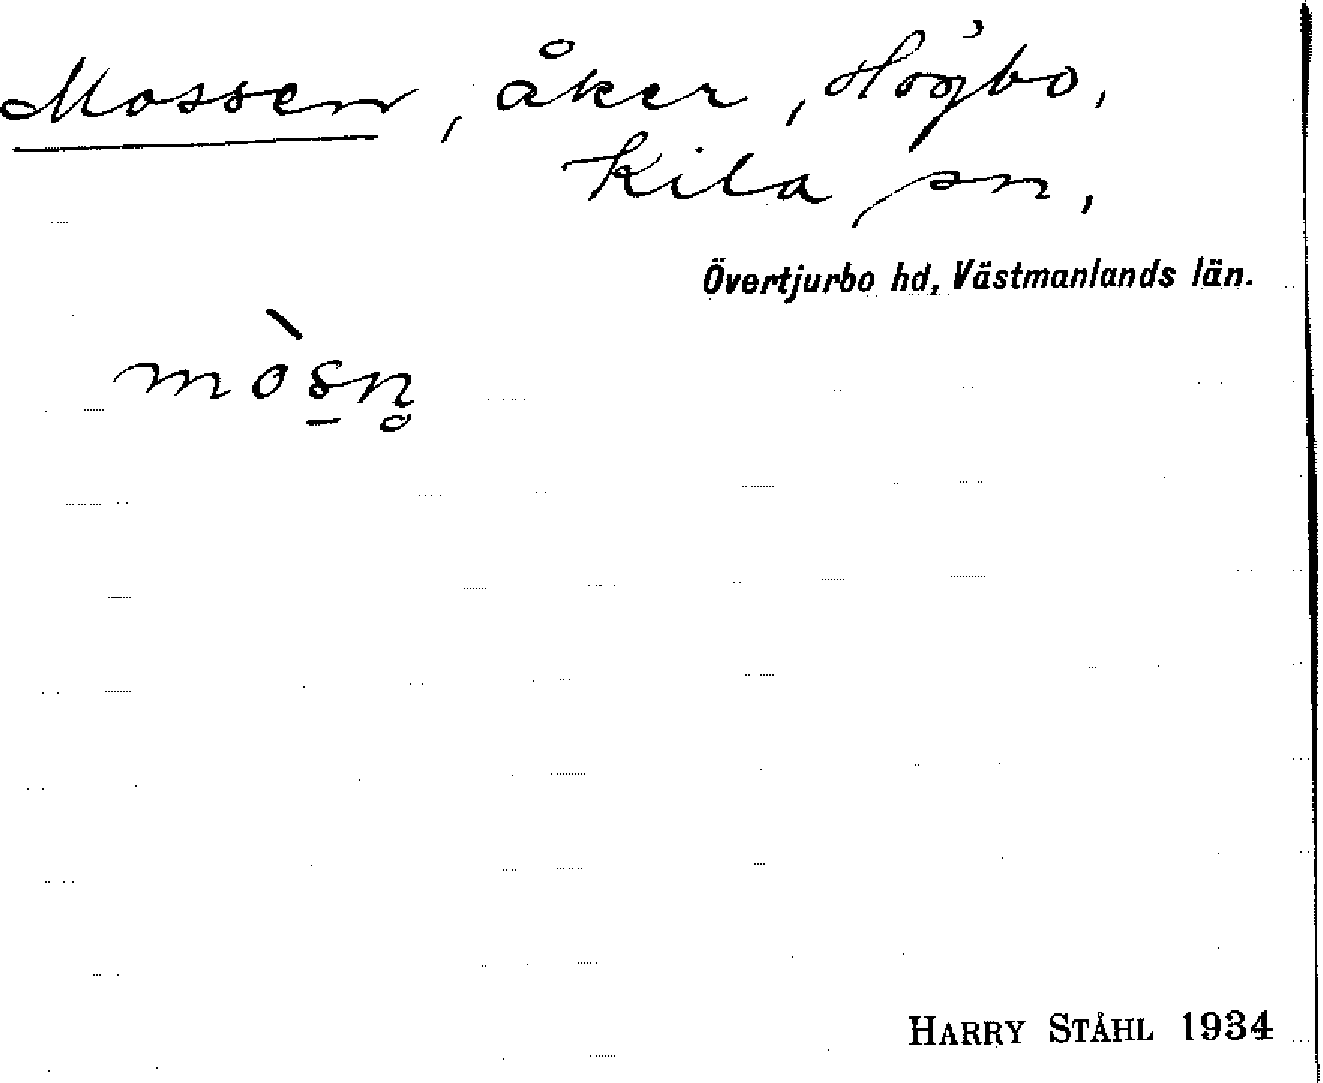 Mossen, åker, Högbo,
Kila sn,
Övertjurbo hd, Västmanlands län.
mòs̠n̥
HARRY STÅHL 1934